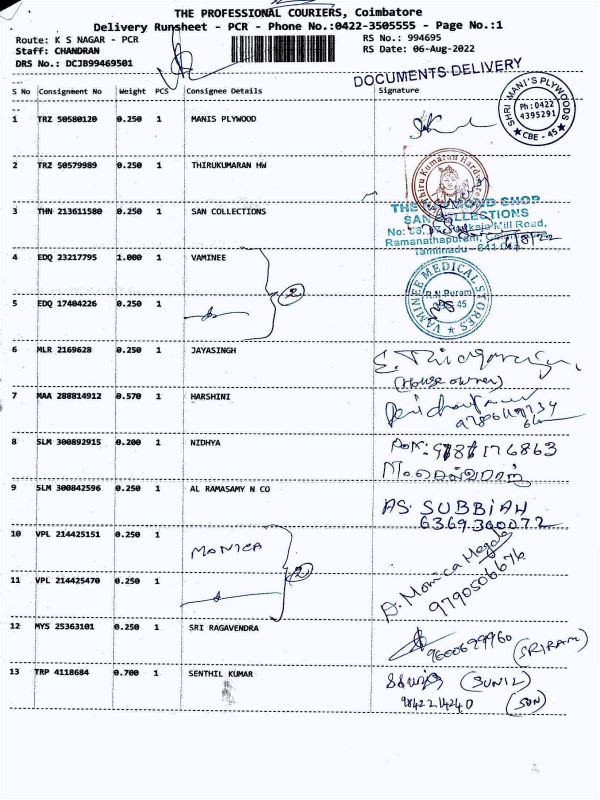 THE PROFESSIONAL COURIERS, Coimbatore
Delivery Runsheet - PCR - Phone No.:0422-3505555 - Page No.:1
Route: K S NAGAR - PCR
RS No.: 994695
Staff: CHANDRAN
RS Date: 06-Aug-2022
DRS No.: DCJB99469501
DOCUMENTS DELIVERY
S No Consignment No Weight PCS Consignee Details Signature
SHRI MANI'S PLYWOODS
Ph : 0422
4395291
★ CBE - 45 ★
1 TRZ 50580120 0.250 1 MANIS PLYWOOD
2 TRZ 50579989 0.250 1 THIRUKUMARAN HW
Thiru Kumaran Hardwares
3 THN 213611580 0.250 1 SAN COLLECTIONS
THE DIAMOND SHOP
SAN COLLECTIONS
Mill Road,
Ramanathapuram,
Tamilnadu - 641
4 EDQ 23217795 1.000 1 VAMINEE
2
VAMINEE MEDICAL STORES
R.N.Puram
45
5 EDQ 17404226 0.250 1
6 MLR 2169628 0.250 1 JAYASINGH
(House owner)
7 MAA 288814912 0.570 1 HARSHINI
8 SLM 300892915 0.200 1 NIDHYA
9 SLM 300842596 0.250 1 AL RAMASAMY N CO
AS. SUBBIAH
6369.300072
10 VPL 214425151 0.250 1 MONICA
2
A. Monica Megala
9790506676
11 VPL 214425470 0.250 1
12 MYS 25363101 0.250 1 SRI RAGAVENDRA
9600699960 (SRIRAM)
13 TRP 4118684 0.700 1 SENTHIL KUMAR
(SUNIL)
9842214240 (SON)